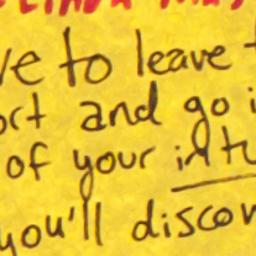 ve to leave
ort and go i
of your intu
you'll discov